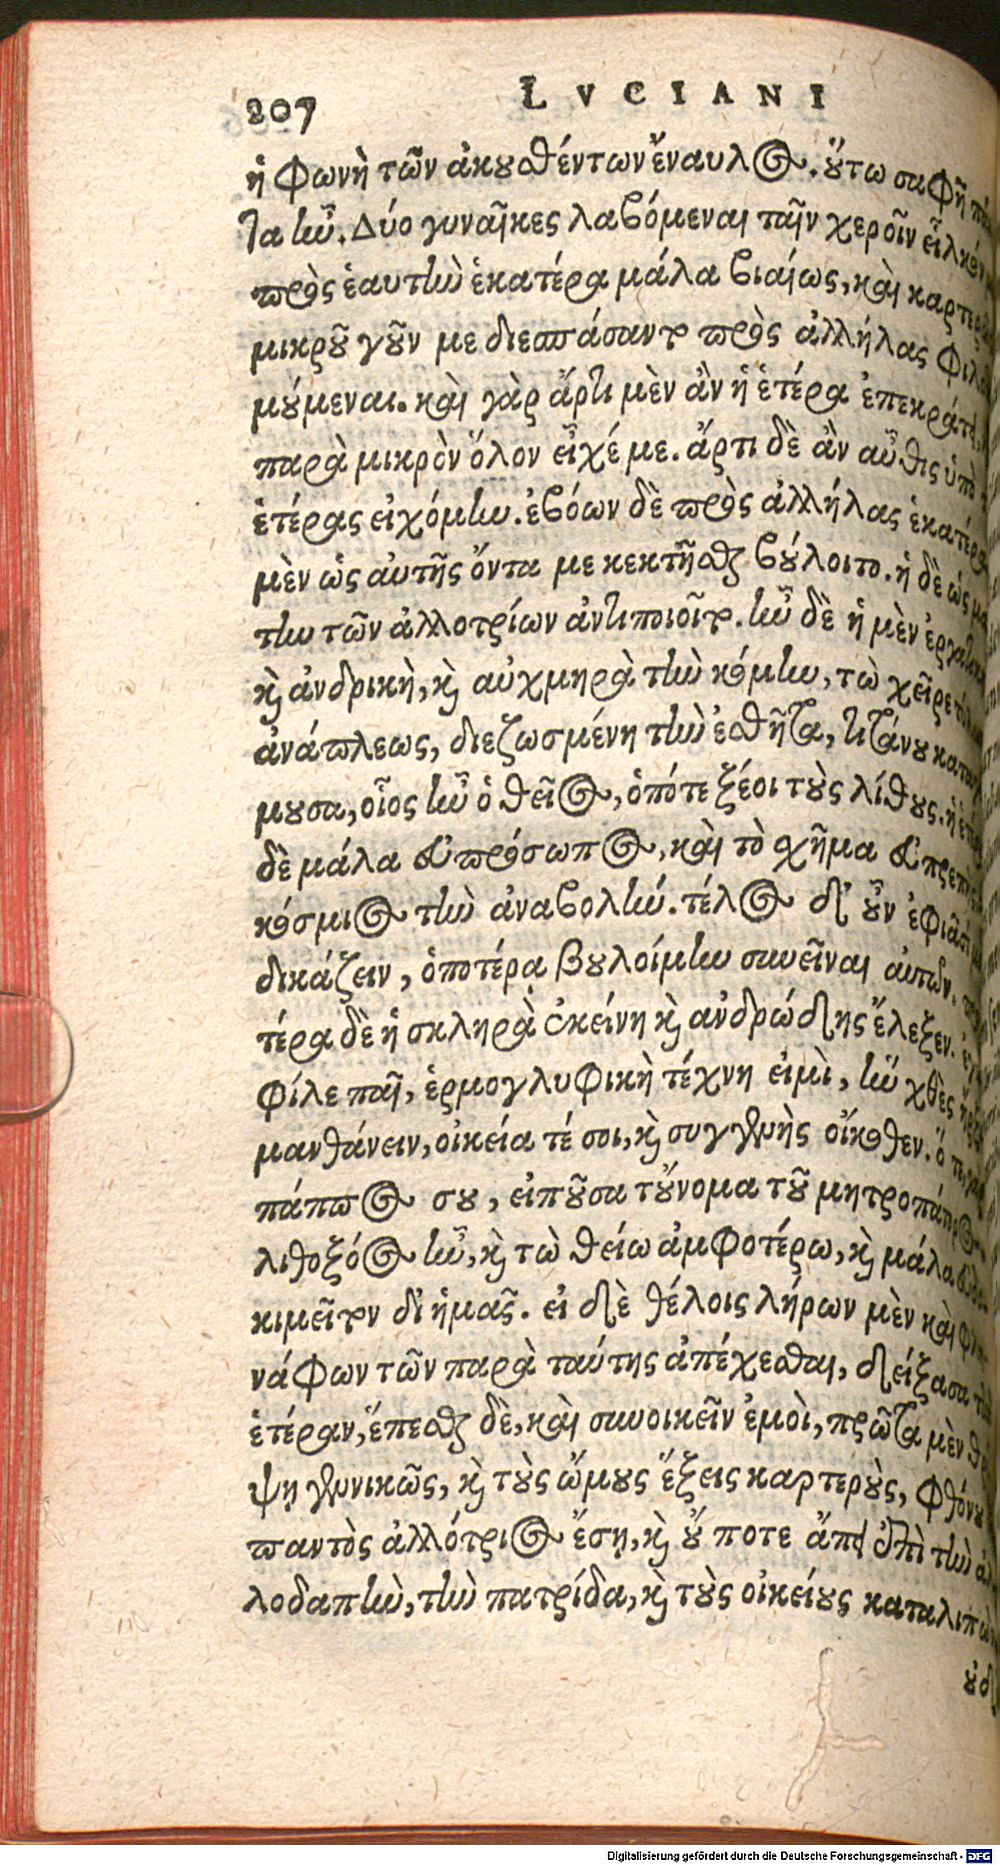 207 LVCIANI
ἡ φωνὴ τῶν ἀκουσθέντων ἔναυλος. οὕτω σαφῆ
τα ἦν. Δύο γυναῖκες λαβόμεναι ταῖν χεροῖν εἷλκόν
πρὸς ἑαυτὴν ἑκατέρα μάλα βιαίως, καὶ
μικροῦ γοῦν με διεσπάσαντο πρὸς ἀλλήλας
μούμεναι. καὶ γὰρ ἄρτι μὲν ἂν ἡ ἑτέρα ἐπεκράτει,
παρὰ μικρὸν ὅλον εἶχέ με. ἄρτι δὲ ἂν αὖθις ὑπὸ
ἑτέρας εἰχόμην. ἐβόων δὲ πρὸς ἀλλήλας ἑκατέρα
μὲν ὡς αὐτῆς ὄντα με κεκτῆσθαι βούλοιτο. ἡ δὲ ὡς
την τῶν ἀλλοτρίων ἀντιποιοῖτο. ἦν δὲ ἡ μὲν
καὶ ἀνδρικὴ, καὶ αὐχμηρὰ τὴν κόμην, τὼ χεῖρε
ἀνάπλεως, διεζωσμένη τὴν ἐσθῆτα, τιτάνου
μουσα, οἷος ἦν ὁ θεῖος, ὁπότε ξέοι τοὺς λίθους. ἡ
δὲ μάλα εὐπρόσωπος, καὶ τὸ σχῆμα εὐπρεπὴς
κόσμιος τὴν ἀναβολήν. τέλος δ᾽ οὖν ἐφιᾶσί
δικάζειν, ὁποτέρᾳ βουλοίμην συνεῖναι αὐτῶν.
τέρα δὲ ἡ σκληρὰ ἐκείνη καὶ ἀνδρώδης ἔλεξεν.
φίλε παῖ, ἑρμογλυφικὴ τέχνη εἰμὶ, ἣν χθὲς
μανθάνειν, οἰκεία τέ σοι, καὶ συγγενὴς οἴκοθεν. ὅ τε
πάππος σου, εἰποῦσα τοὔνομα τοῦ μητροπάτορος
λιθοξόος ἦν, καὶ τὼ θείω ἀμφοτέρω, καὶ μάλα
κιμεῖτον δι᾽ ἡμᾶς. εἰ δὲ θέλοις λήρων μὲν καὶ
νάφων τῶν παρὰ ταύτης ἀπέχεσθαι, δείξασα
ἑτέραν, ἕπεσθαι δὲ, καὶ συνοικεῖν ἐμοὶ, πρῶτα μὲν
ψῃ γεννικῶς, καὶ τοὺς ὤμους ἕξεις καρτεροὺς, φθόνου
παντὸς ἀλλότριος ἔσῃ, καὶ οὔ ποτε ἄπει ἐπὶ τὴν
λοδαπὴν, τὴν πατρίδα, καὶ τοὺς οἰκείους καταλιπὼν
Digitalisierung gefördert durch die Deutsche Forschungsgemeinschaft - DFG